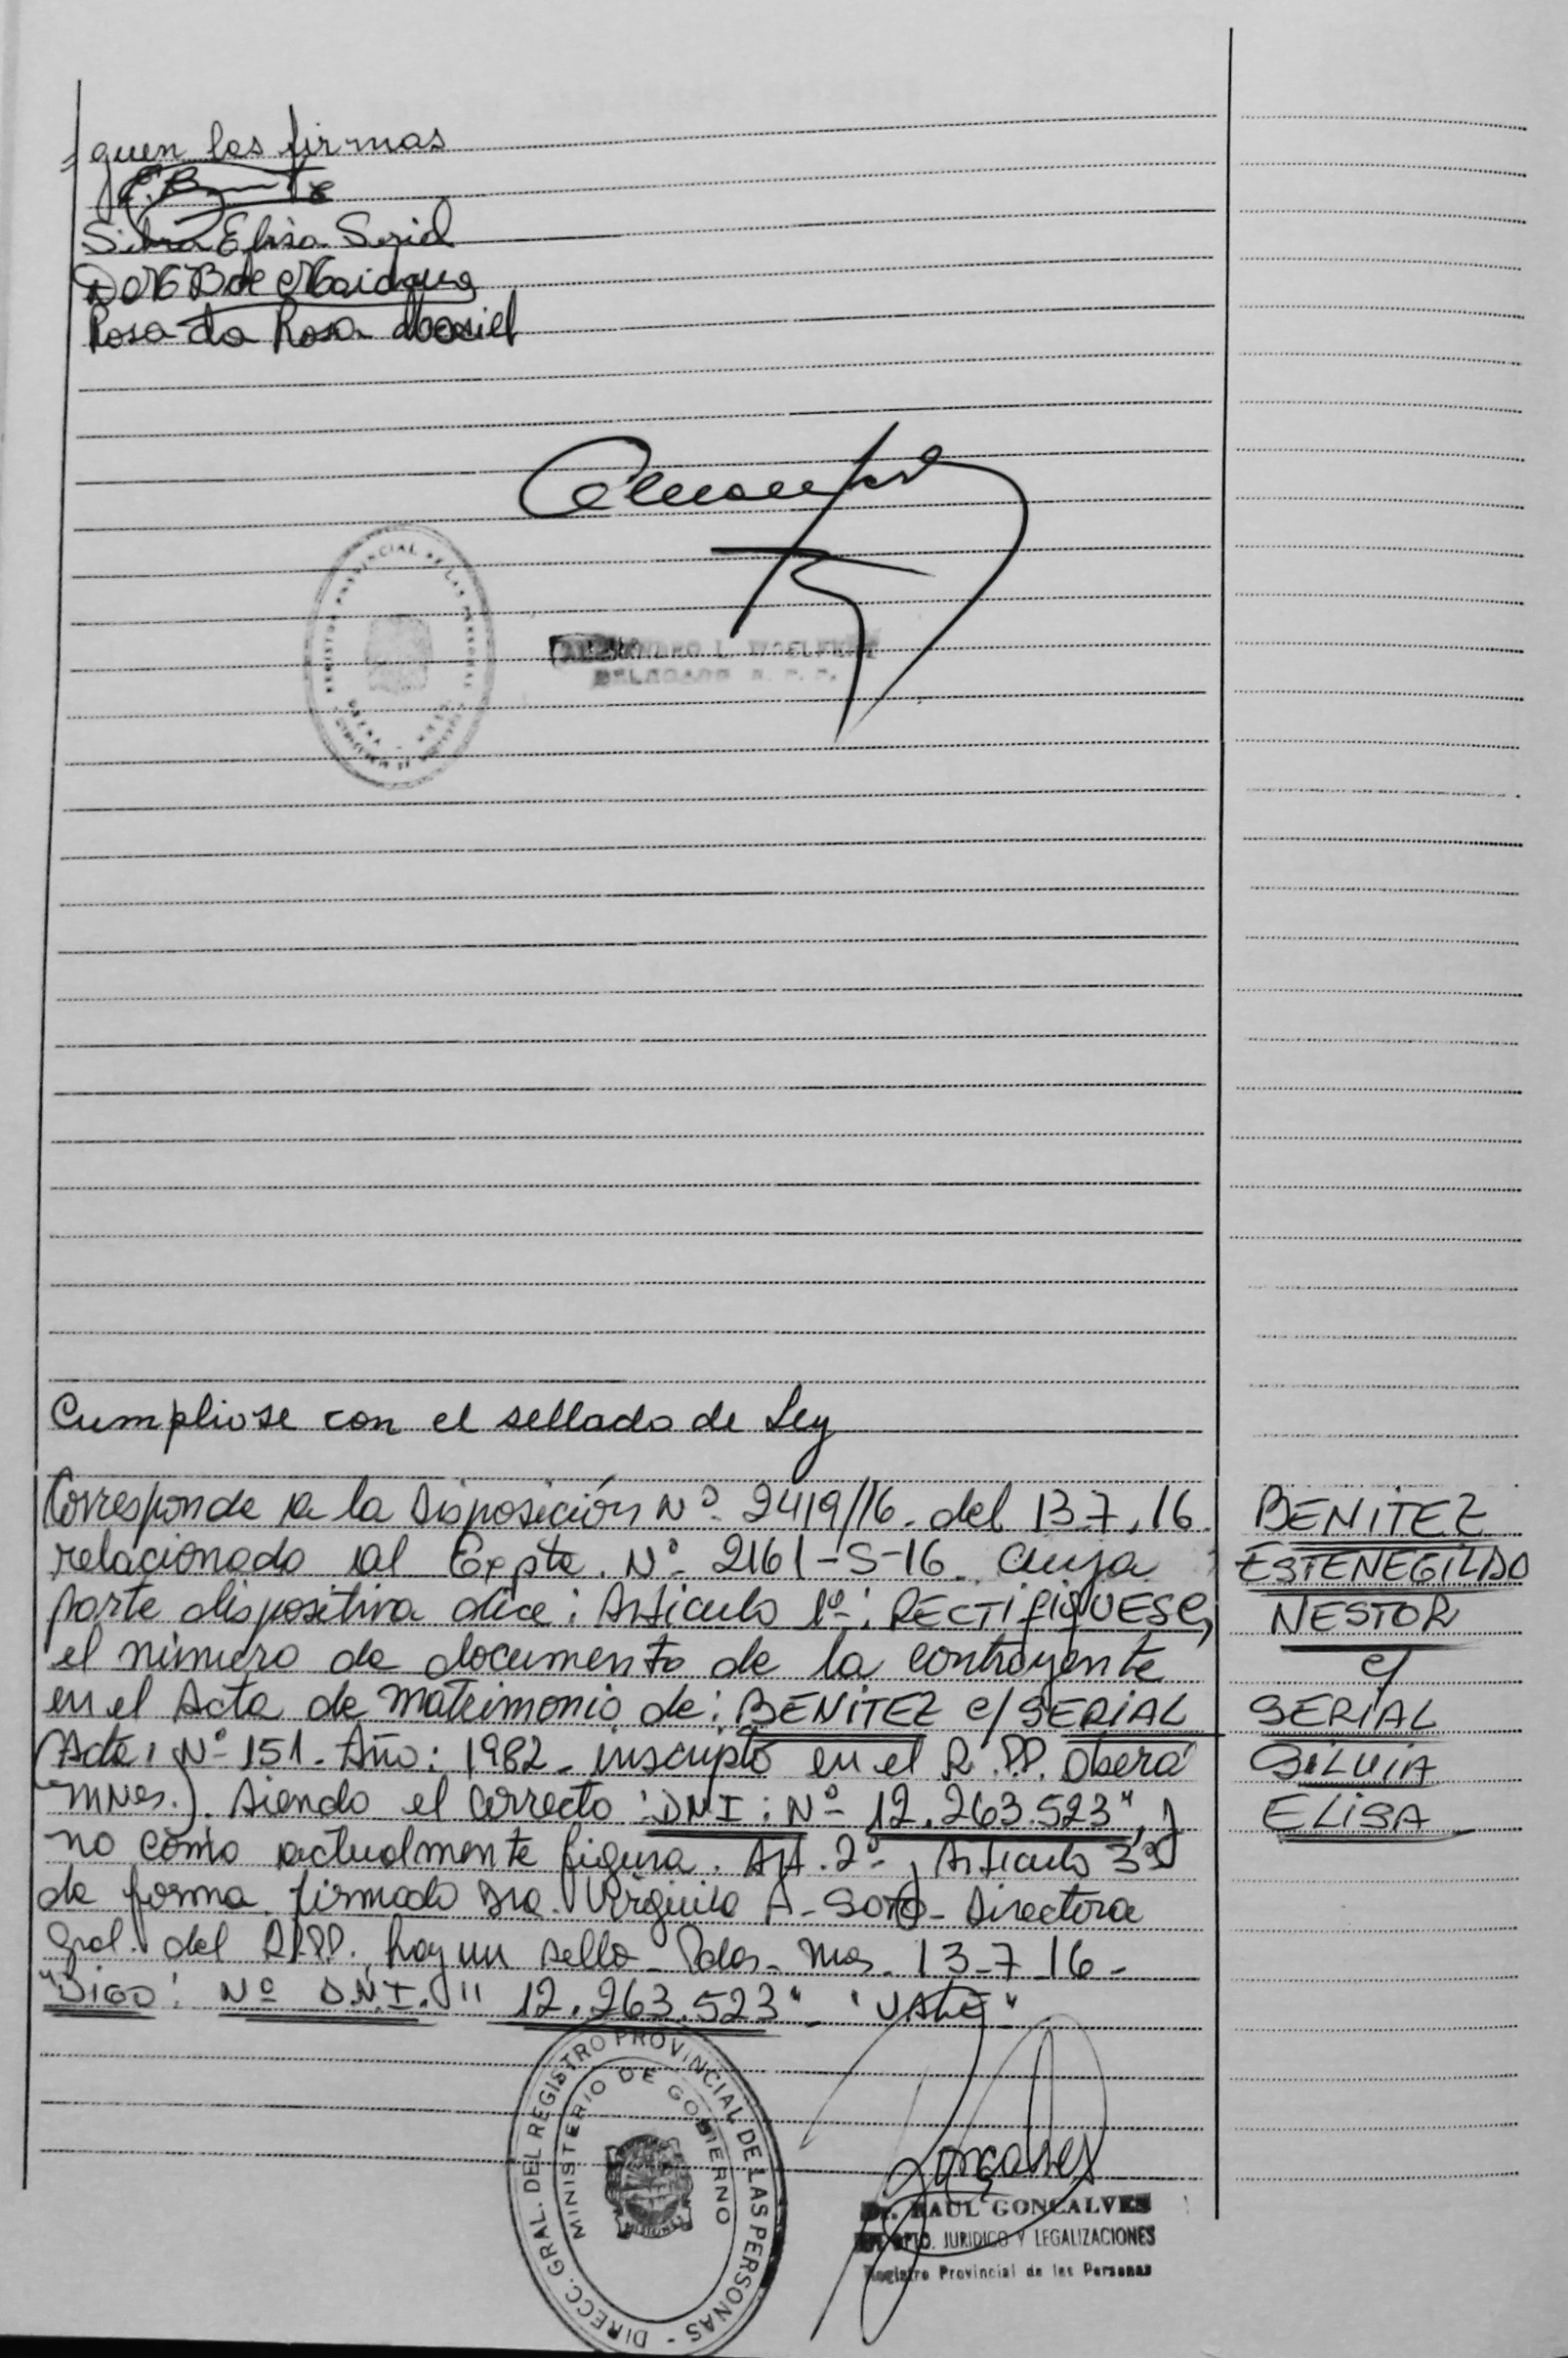 guen las firmas
Silvia Elisa Serial
Rosa da Rosa Maciel
REGISTRO PROVINCIAL DE LAS PERSONAS
DELEGADO R. P. P.
Cumpliose con el sellado de Ley
Corresponde a la Disposición Nº 2419/16. del 13.7.16.
relacionado al Expte. Nº 2161-S-16. cuya
parte dispositiva dice: Articulo 1º: RECTIFIQUESE,
el número de documento de la contrayente
en el Acta de Matrimonio de: BENITEZ c/ SERIAL
(Acta: Nº 151. Año: 1982. inscripto en el R.P.P. Oberá
Mnes.). siendo el correcto: "DNI: Nº 12.263.523" y
no como actualmente figura. Art. 2º y Articulo 3º
de forma. firmado Dra. Virginia A. SOTO - Directora
Gral. del R.P.P. hay un sello - Pdas. Mns. 13-7-16-
"DIGO: Nº D.N.I. " 12.263.523" "VALE"
BENITEZ
ESTENEGILDO
NESTOR
c/
SERIAL
SILVIA
ELISA
DIRECC. GRAL. DEL REGISTRO PROVINCIAL DE LAS PERSONAS -
MINISTERIO DE GOBIERNO
MISIONES
Goncalves
Dr. RAUL GONCALVES
DPTO. JURIDICO Y LEGALIZACIONES
Registro Provincial de las Personas